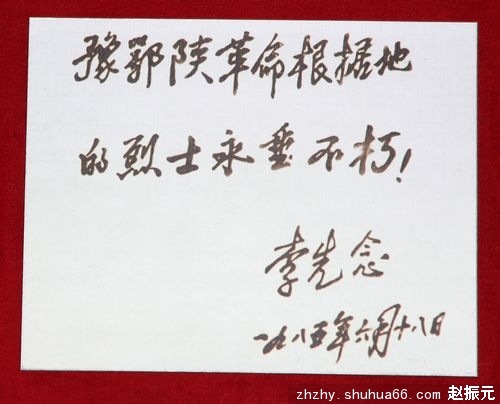 豫鄂陕革命根据地
的烈士永垂不朽！
李先念
一九八五年六月十八日
zhzhy.shuhua66.com 赵振元